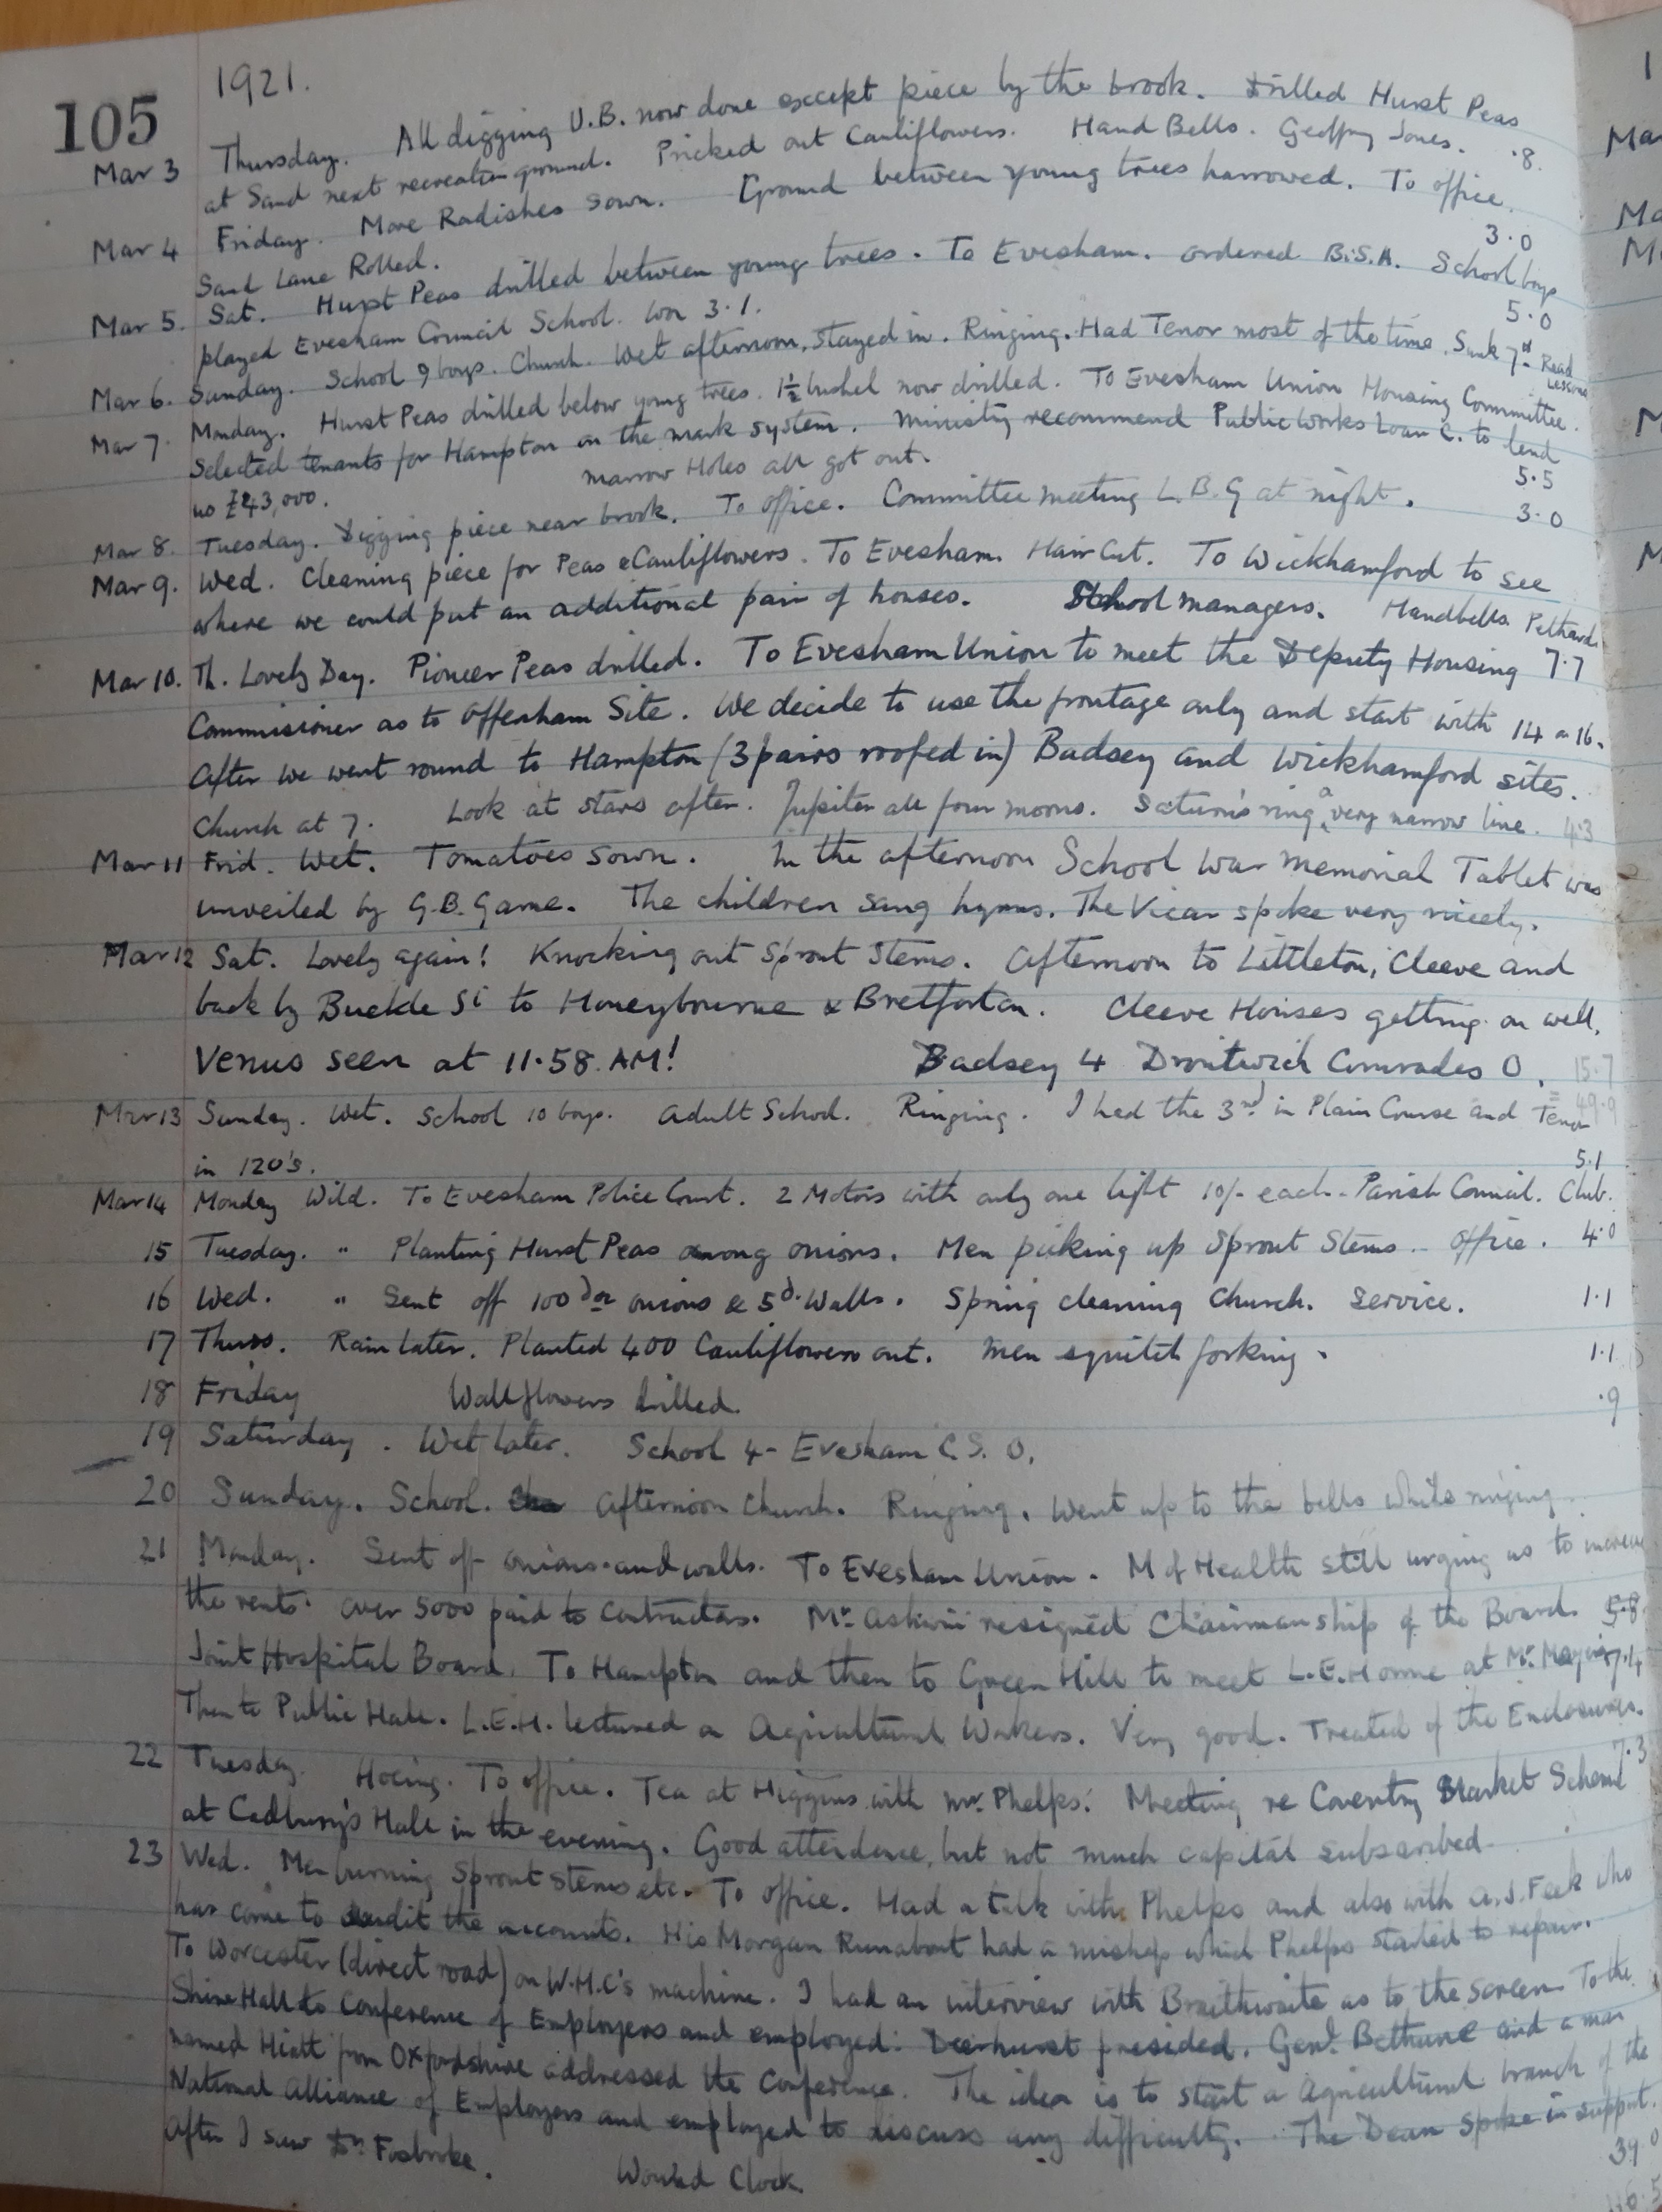 105
1921.
Mar 3 Thursday. All digging U.B. now done except piece by the brook. Drilled Hurst Peas
at Sand next recreation ground. Pricked out Cauliflowers. Hand Bells. Geoffry Jones. .8.
Mar 4 Friday. More Radishes sown. Ground between young trees harrowed. To office.
Sand Lane Rolled. 3.0
Mar 5. Sat. Hurst Peas drilled between young trees. To Evesham. ordered B.S.A. School boys
played Evesham Council School. Won 3.1. 5.0
Mar 6. Sunday. School 9 boys. Church. Wet afternoon, stayed in. Ringing. Had Tenor most of the time. Sunk 7d. Read Lessons
Mar 7. Monday. Hurst Peas drilled below young trees. 1½ bushel now drilled. To Evesham Union Housing Committee.
Selected tenants for Hampton on the mark system. Ministry recommend Public Works Loan C. to lend
us £43,000. Marrow Holes all got out. 5.5
Mar 8. Tuesday. Digging piece near brook. To office. Committee meeting L.B.G at night. 3.0
Mar 9. Wed. Cleaning piece for Peas & Cauliflowers. To Evesham. Hair Cut. To Wickhamford to see
where we could put an additional pair of houses. School managers. Handbells. Pethard.
Mar 10. Th. Lovely Day. Pioneer Peas drilled. To Evesham Union to meet the Deputy Housing 7.7
Commisioner as to Offenham Site. We decide to use the frontage only and start with 14 or 16.
After we went round to Hampton (3 pairs roofed in) Badsey and Wickhamford sites.
Church at 7. Look at stars after. Jupiter all four moons. Saturn's ring a very narrow line. 4.3
Mar 11 Frid. Wet. Tomatoes sown. In the afternoon School War Memorial Tablet was
unveiled by G.B. Game. The children sang hymns. The Vicar spoke very nicely.
Mar 12 Sat. Lovely again! Knocking out Sprout Stems. Afternoon to Littleton, Cleeve and
back by Buckle St to Honeybourne & Bretforton. Cleeve Houses getting on well.
Venus seen at 11.58. AM! Badsey 4 Droitwich Comrades 0. 15.7
49.9
Mar 13 Sunday. Wet. School 10 boys. Adult School. Ringing. I had the 3rd in Plain Course and Tenor
in 120's. 5.1
Mar 14 Monday Wild. To Evesham Police Court. 2 Motors with only one light 10/- each. Parish Council. Club.
15 Tuesday. " Planting Hurst Peas among onions. Men picking up Sprout Stems. Office. 4.0
16 Wed. " Sent off 100 doz onions & 5 d. Walls. Spring cleaning Church. Service. 1.1
17 Thurs. Rain later. Planted 400 Cauliflowers out. Men squitch forking. 1.1
18 Friday Wallflowers drilled. .9
19 Saturday. Wet later. School 4 - Evesham C.S. 0.
20 Sunday. School. Afternoon Church. Ringing. Went up to the bells while ringing.
21 Monday. Sent off onions and walls. To Evesham Union. M of Health still urging us to increase
the rents. Over 5000 paid to Contractors. Mr. Askwin resigned Chairmanship of the Board. 5.8
Joint Hospital Board. To Hampton and then to Green Hill to meet L.E. Horne at Mr. 7.4
Then to Public Hall. L.E.H. lectured on Agricultural Workers. Very good. Treated of the Enclosures.
22 Tuesday. Hoeing. To office. Tea at Higgins with Mr. Phelps. Meeting re Coventry Market Scheme 7.3
at Cadbury's Hall in the evening. Good attendence, but not much capital subscribed.
23 Wed. Men burning Sprout Stems etc. To office. Had a talk with Phelps and also with A.J. Feek who
has come to audit the accounts. His Morgan Runabout had a mishap which Phelps started to repair.
To Worcester (direct road) on W.H.C's machine. I had an interview with Braithwaite as to the Screen. To the
Shire Hall to Conference of Employers and employed. Deerhurst presided. Genl. Bethune and a man
named Hiatt from Oxfordshire addressed the Conference. The idea is to start a Agricultural branch of the
National Alliance of Employers and employed to discuss any difficulty. The Dean spoke in support.
After I saw Dr. Fosbroke. Wound Clock 39.0